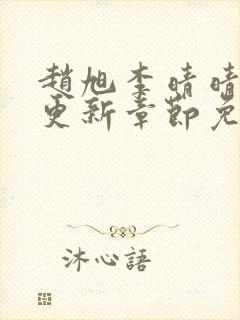 趙旭李晴晴
更新章節免
沐心語